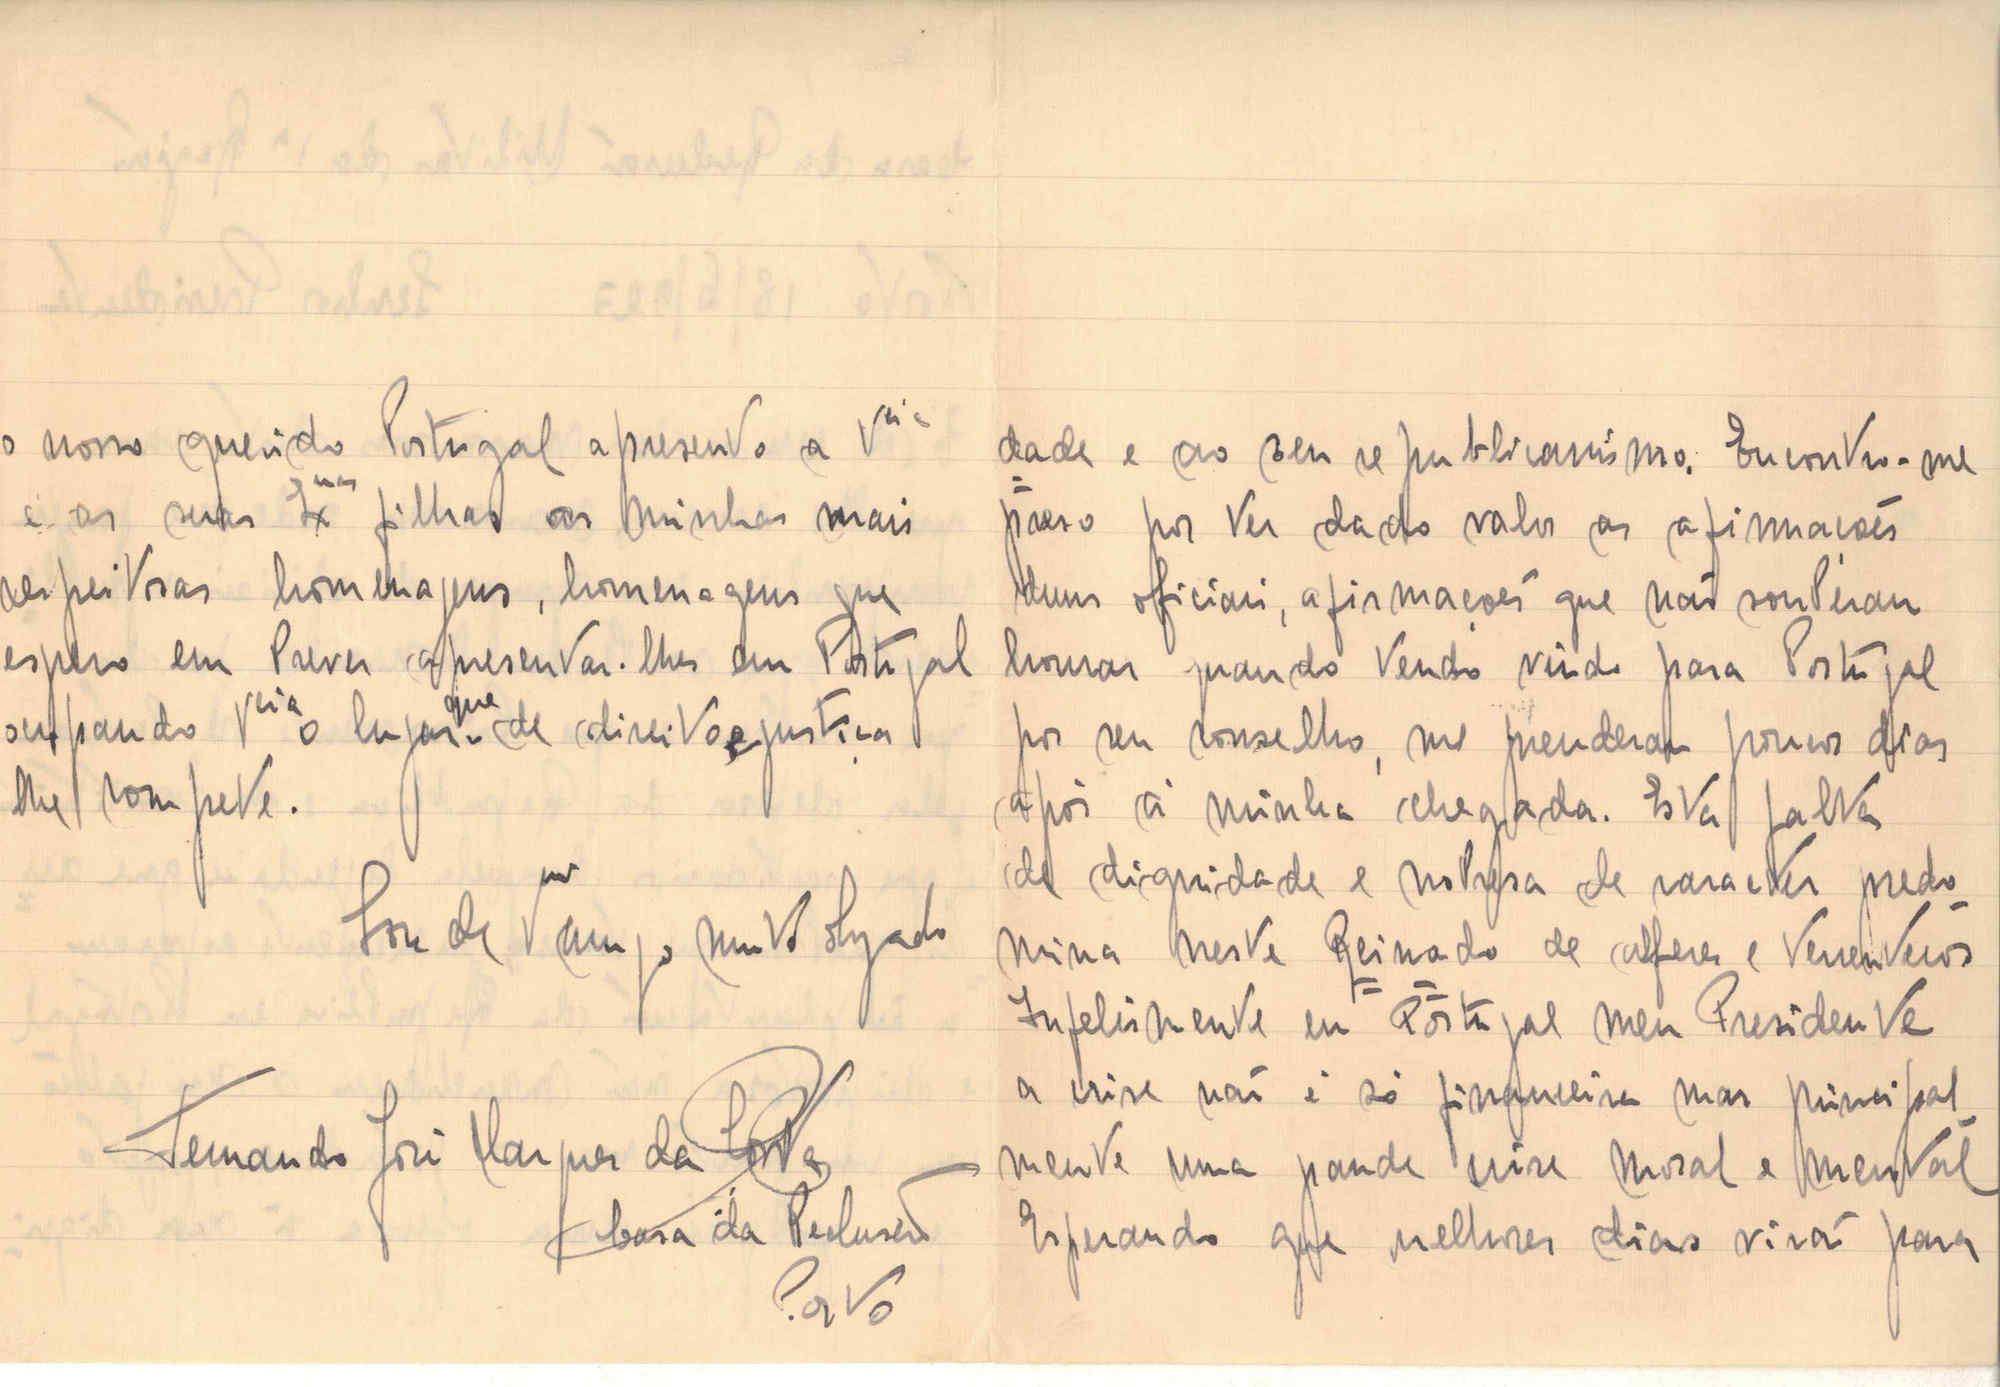 dade e ao seu republicanismo. Encontro-me
preso por ter dado valor as afirmações
duns oficiais, afirmações que não souberam
honrar quando tendo vindo para Portugal
por seu conselho, me prenderam poucos dias
após á minha chegada. Esta falta
de dignidade e nobresa de caracter predo
mina neste Reinado de alferes e tenenteiros
Infelismente em Portugal meu Presidente
a crise não é só financeira mas principal
mente uma grande crise moral e mental
Esperando que melhores dias virão para
o nosso querido Portugal apresento a Vcia
e as suas Exmas filhas as minhas mais
respeitosas homenagens, homenagens que
espero em breve apresentar-lhes em Portugal
ocupando Vcia o lugar que de direito e justiça
lhe compete.
Sou de V amigo muito obrigado
Fernando José Marques da Costa
Casa da Reclusão
Porto